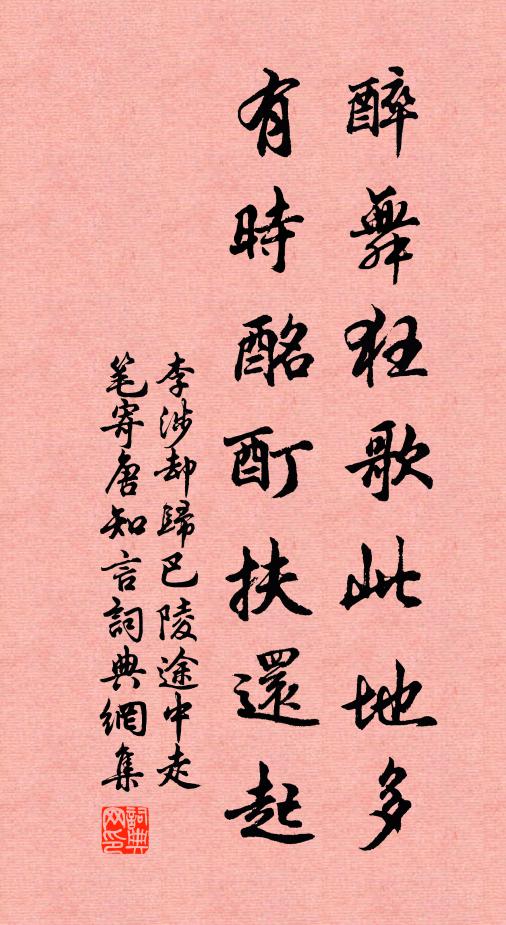 醉舞狂歌此地多
有時酩酊扶還起
李涉却歸巴陵途中走
笔寄唐知言詞典網集
詞典
网印